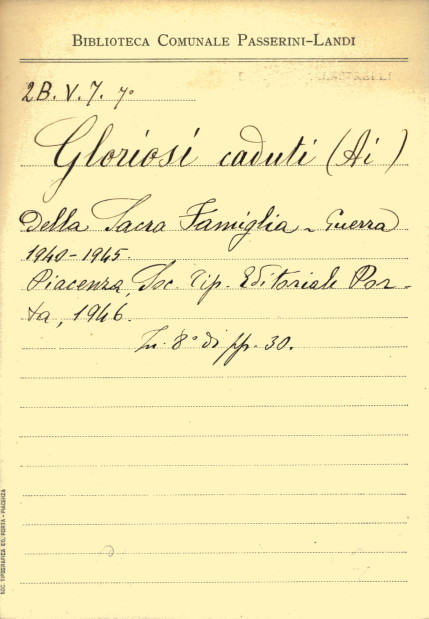 BIBLIOTECA COMUNALE PASSERINI-LANDI
2B. V. 7. 7°
Gloriosi caduti (Ai)
Della Sacra Famiglia - Guerra
1940-1945.
Piacenza, Soc. Tip. Editoriale Por-
ta, 1946.
In 8° di pp. 30.
SOC. TIPOGRAFICA ED. PORTA - PIACENZA